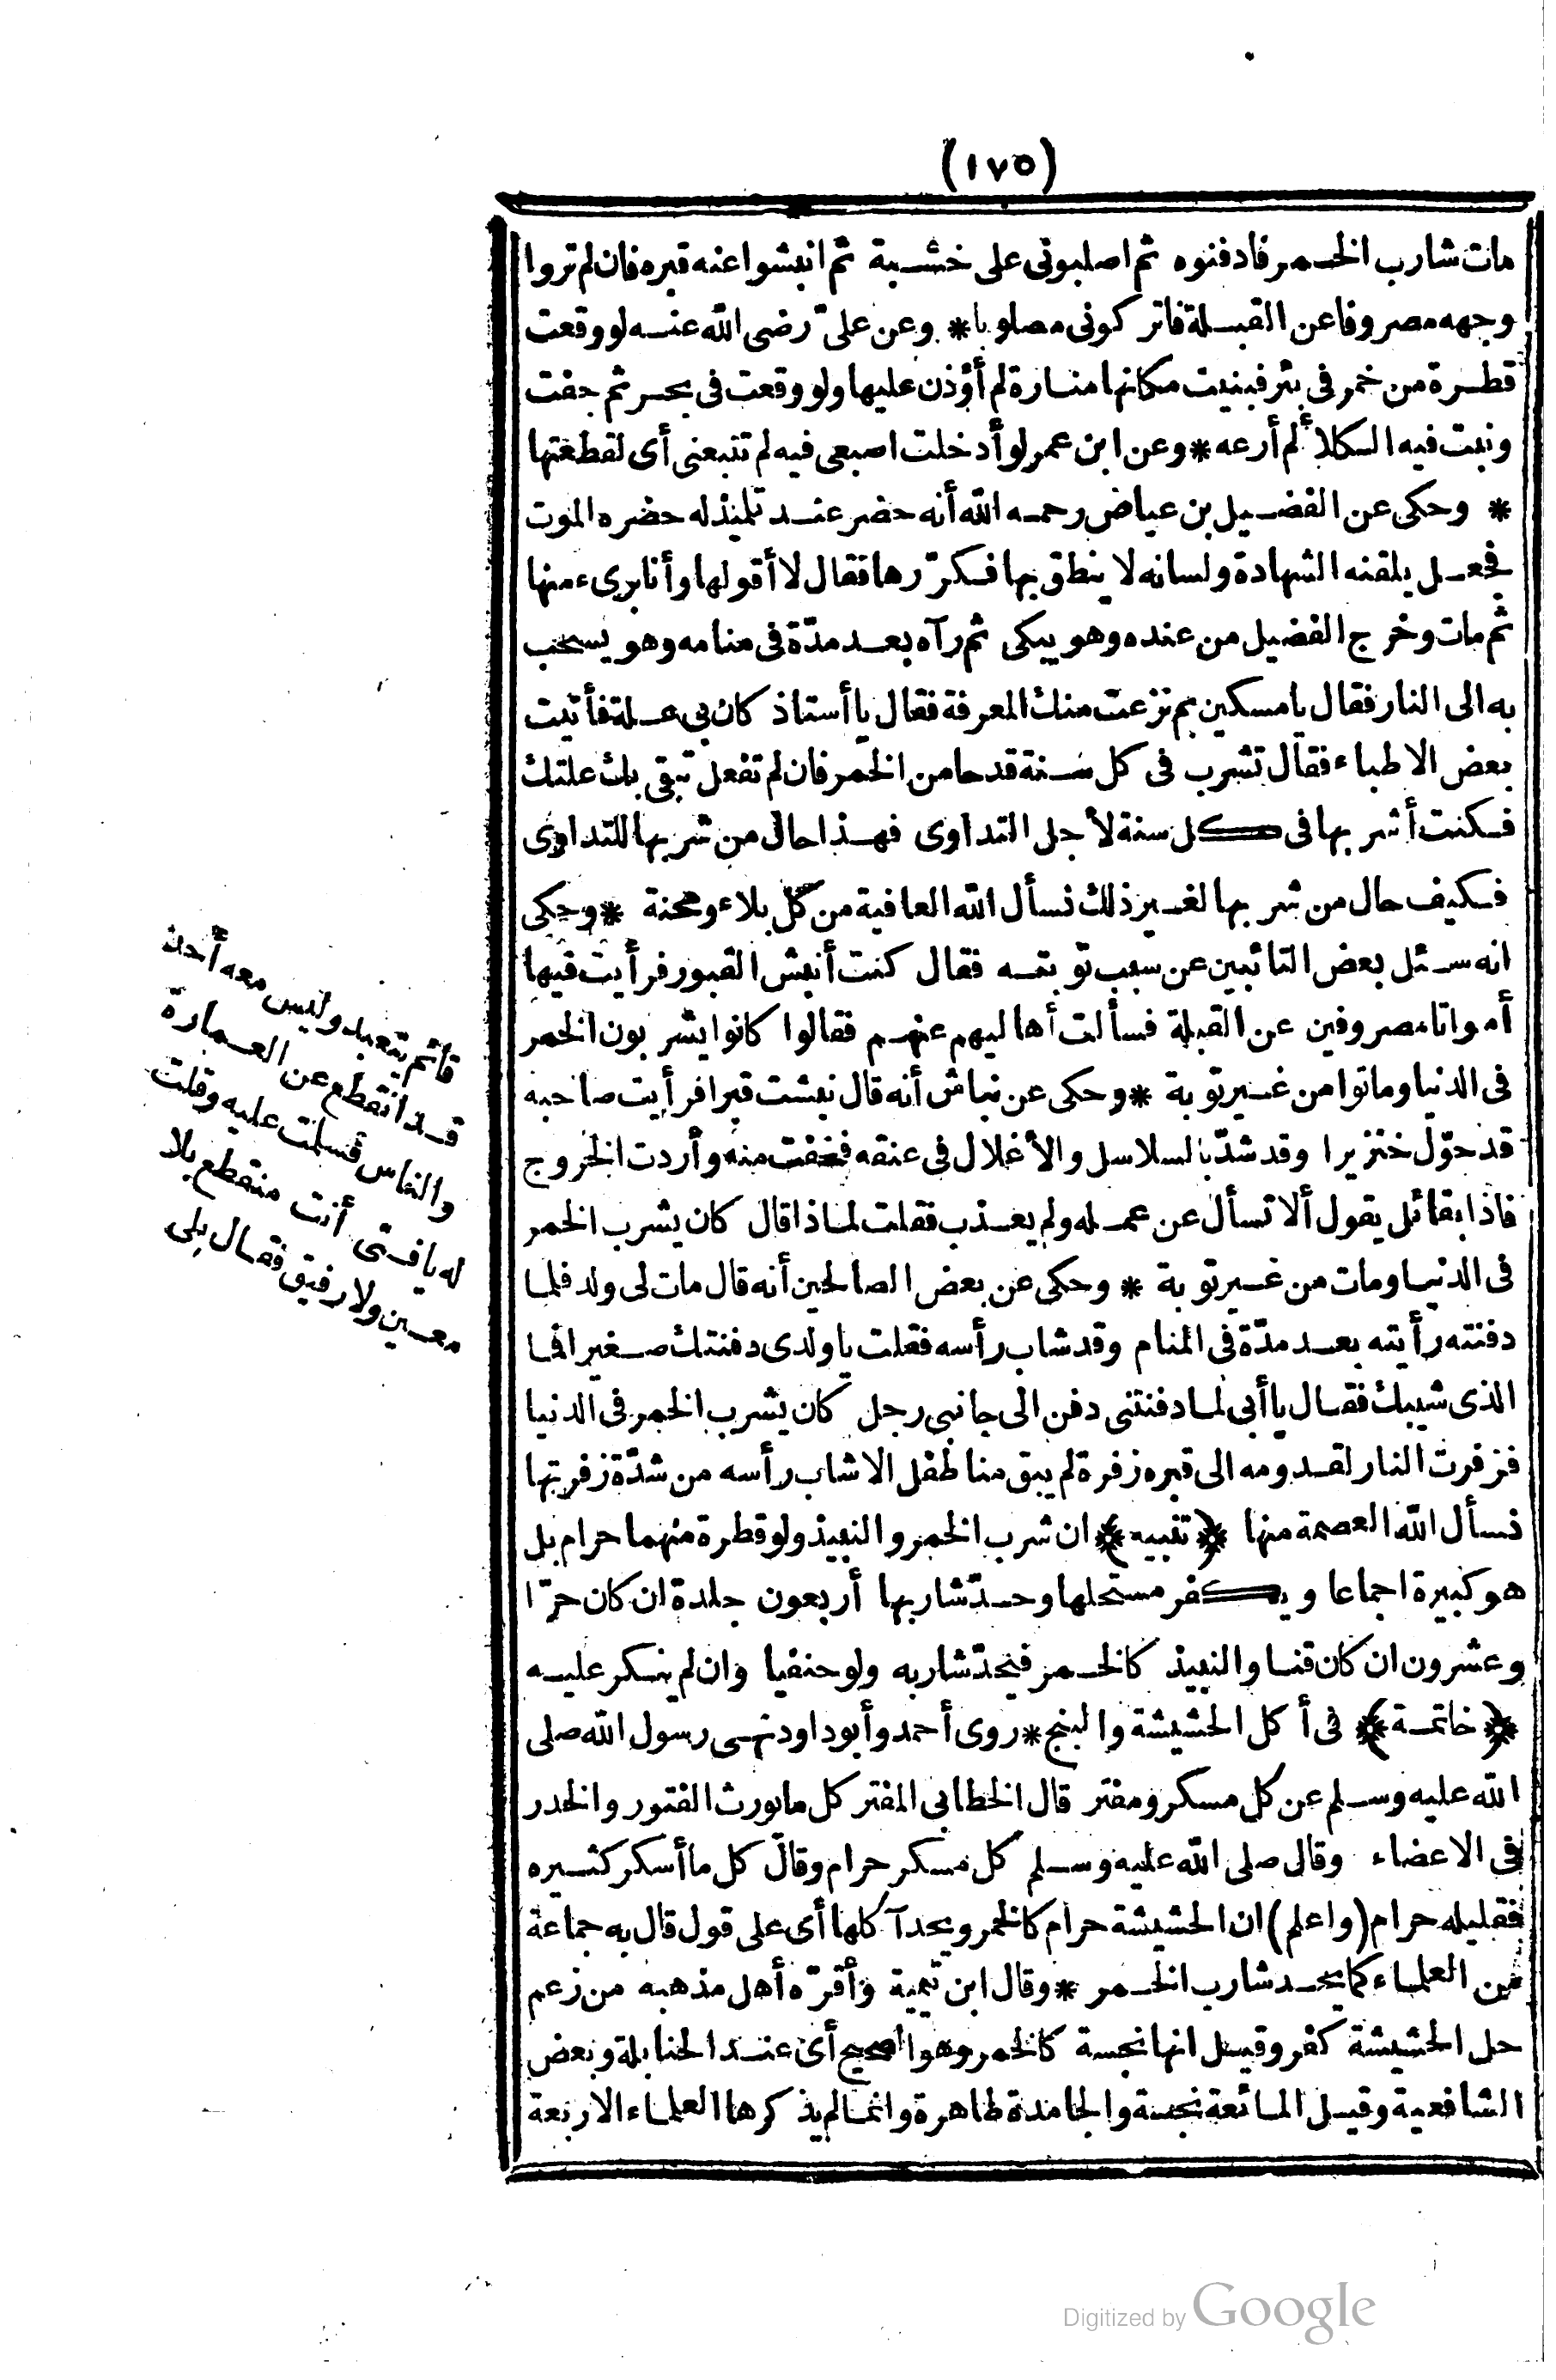 (١٧٥)
مات شارب الخمر فادفنوه ثم اصلبونى على خشبة ثم انبشوا عنه قبره فان لم تروا
وجهه مصروفا عن القبلة فاتركونى مصلوبا * وعن علىّ رضى الله عنه لو وقعت
قطرة من خمر فى بئر فبنيت مكانها منارة لم أؤذن عليها ولو وقعت فى بحر ثم جفت
ونبت فيه الكلأ لم أرعه * وعن ابن عمر لو أدخلت اصبعى فيه لم تتبعنى أى لقطعتها
* وحكى عن الفضيل بن عياض رحمه الله أنه حضر عند تلميذ له حضره الموت
فجعل يلقنه الشهادة ولسانه لا ينطق بها فكرّرها فقال لا أقولها وأنا برىء منها
ثم مات وخرج الفضيل من عنده وهو يبكى ثم رآه بعد مدّة فى منامه وهو يسحب
به الى النار فقال يا مسكين بم نزعت منك المعرفة فقال يا أستاذ كان بى علة فأتيت
بعض الاطباء فقال تشرب فى كل سنة قدحا من الخمر فان لم تفعل تبقى بك علتك
فكنت أشربها فى كل سنة لأجل التداوى فهذا حال من شربها للتداوى
فكيف حال من شربها لغير ذلك نسأل الله العافية من كل بلاء ومحنة * وحكى
انه سئل بعض التائبين عن سبب توبته فقال كنت أنبش القبور فرأيت فيها
أمواتا مصروفين عن القبلة فسألت أهاليهم عنهم فقالوا كانوا يشربون الخمر
فى الدنيا وماتوا من غير توبة * وحكى عن نباش أنه قال نبشت قبرا فرأيت صاحبه
قد حوّل خنزيرا وقد شدّ بالسلاسل والأغلال فى عنقه فخفت منه وأردت الخروج
فاذا بقائل يقول ألا تسأل عن عمله ولم يعذب فقلت لماذا قال كان يشرب الخمر
فى الدنيا ومات من غير توبة * وحكى عن بعض الصالحين أنه قال مات لى ولد فلما
دفنته رأيته بعد مدّة فى المنام وقد شاب رأسه فقلت يا ولدى دفنتك صغيرا فما
الذى شيبك فقال يا أبى لما دفنتنى دفن الى جانبى رجل كان يشرب الخمر فى الدنيا
فزفرت النار لقدومه الى قبره زفرة لم يبق منا طفل الا شاب رأسه من شدّة زفرتها
نسأل الله العصمة منها ﴿تنبيه﴾ ان شرب الخمر والنبيذ ولو قطرة منهما حرام بل
هو كبيرة اجماعا ويكفر مستحلها وحدّ شاربها أربعون جلدة ان كان حرّا
وعشرون ان كان قنا والنبيذ كالخمر فيحدّ شاربه ولو حنفيا وان لم ينكر عليه
﴿خاتمة﴾ فى أكل الحشيشة والبنج * روى أحمد وأبوداود نهى رسول الله صلى
الله عليه وسلم عن كل مسكر ومفتر قال الخطابى المفتر كل ما يورث الفتور والخدر
فى الاعضاء وقال صلى الله عليه وسلم كل مسكر حرام وقال كل ما أسكر كثيره
فقليله حرام (واعلم) ان الحشيشة حرام كالخمر ويحد آكلها أى على قول قال به جماعة
من العلماء كما يحد شارب الخمر * وقال ابن تيمية وأقرّه أهل مذهبه من زعم
حل الحشيشة كفر وقيل انها نجسة كالخمر وهو الصحيح أى عند الحنابلة وبعض
الشافعية وقيل المائعة نجسة والجامدة طاهرة وانما لم يذكرها العلماء الاربعة
قائم يتعبد وليس معه أحد
قد انقطع عن العمارة
والناس فسلمت عليه وقلت
له يا فتى أنت منقطع بلا
معين ولا رفيق فقال بلى
Digitized by Google